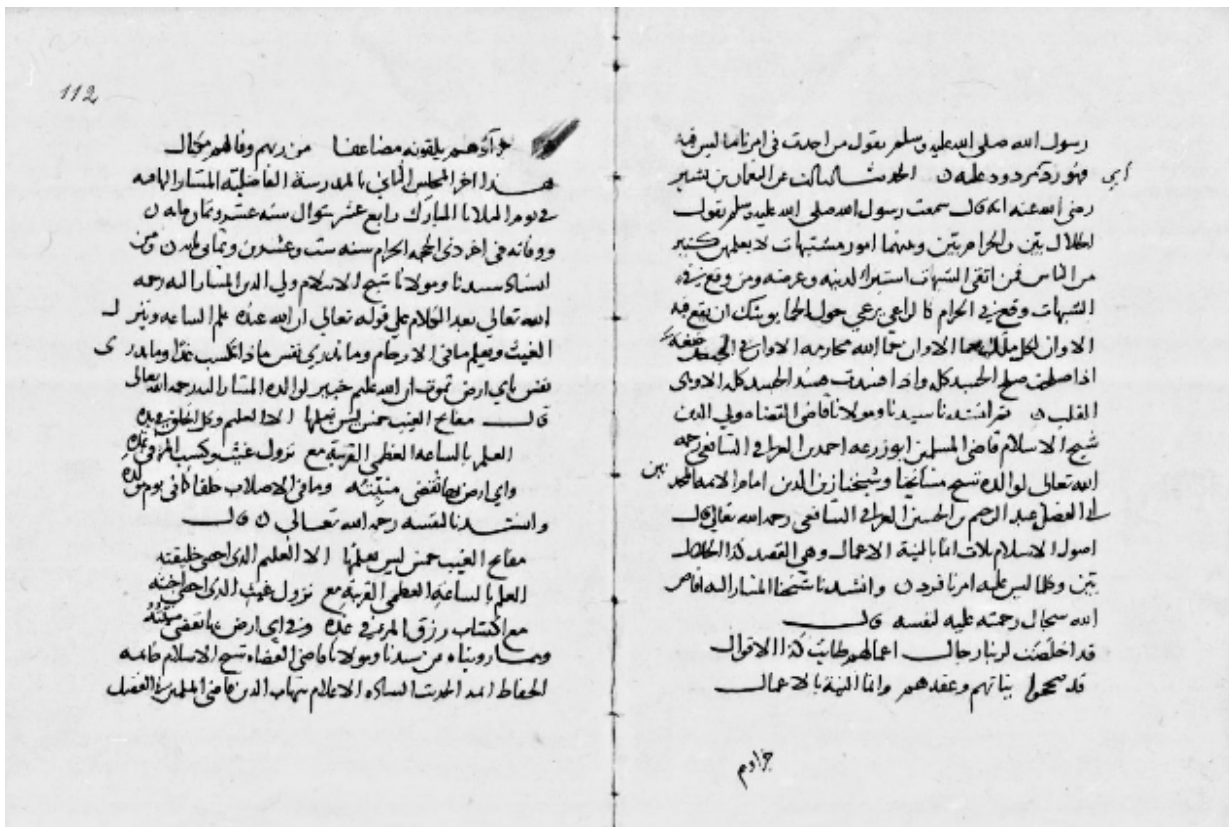 رسول الله صلى الله عليه وسلم يقول من احدث في امرنا ما ليس فيه
فهو رد مردود عليه الحديث الثالث عن النعمان بن بشير
أبي
رضي الله عنه انه قال سمعت رسول الله صلى الله عليه وسلم يقول
الحلال بين والحرام بين وبينهما امور مشتبهات لا يعلمهن كثير
من الناس فمن اتقى الشبهات استبرا لدينه وعرضه ومن وقع في
الشبهات وقع في الحرام كالراعي يرعى حول الحما يوشك ان يقع فيه
الا وان لكل ملك حما الا وان حما الله محارمه الا وان في الجسد مضغة
اذا صلحت صلح الجسد كله واذا فسدت فسد الجسد كله الا وهى
القلب ثم انشدنا سيدنا ومولانا قاضي القضاة ولي الدين
شيخ الاسلام قاضي المسلمين ابو زرعه احمد بن العراقي الشافعي رحمه
الله تعالى لوالده شيخ مشايخنا وشيخنا زين الدين امام الايمه
بين
ابي الفضل عبد الرحيم بن الحسين العراقي الشافعي رحمه الله تعالى قال
اصول الاسلام ثلاث انما بالنية الاعمال وهي القصد كذا الحلال
بين وكلما ليس عليه امرنا فرد وانشدنا شيخنا المشار اليه افاض
الله سجال رحمته عليه لنفسه قال
قد اخلصت لربنا رجال اعمالهم طابت كذا الاقوال
قد صححوا نياتهم وعقدهم وانما النية بالاعمال
جزاؤهم
112
جزاؤهم يلقونه مضاعفا من ربهم وما لهم مجال
هذا اخر المجلس الثاني بالمدرسة الفاضلية المشار اليها فيه
في يوم الثلاثا المبارك رابع عشر شوال سنه عشر وثمان مايه
ووفاته في اخر ذى الحجة الحرام سنه ست وعشرين وثماني مايه
انشاد سيدنا ومولانا شيخ الاسلام ولي الدين المشار اليه رحمه
الله تعالى بعد الكلام على قوله تعالى ان الله عنده علم الساعه وينزل
الغيث ويعلم ما في الارحام وما تدري نفس ماذا تكسب غدا وما تدرى
نفس باي ارض تموت ان الله عليم خبير لوالده المشار اليه رحمه الله تعالى
قال مفاتح الغيب خمس ليس يعلمها الا العليم وكل الخلق
العلم بالساعه العظمى القريبة مع نزول غيث وكسب المرء في غده
واي ارض بها تقضى منيته وما في الاصلاب
وانشدنا لنفسه رحمه الله تعالى قال
مفاتح الغيب خمس ليس يعلمها الا العليم الذي احصى خليقته
العلم بالساعة العظمى القريبة مع نزول غيث الذى احصى
مع اكتساب رزق المرء في غده وفي اي ارض بها تقضى منيته
ومما رويناه عن سيدنا ومولانا قاضي القضاه شيخ الاسلام خاتمه
الحفاظ شهاب الدين قاضي المسلمين ابو الفضل